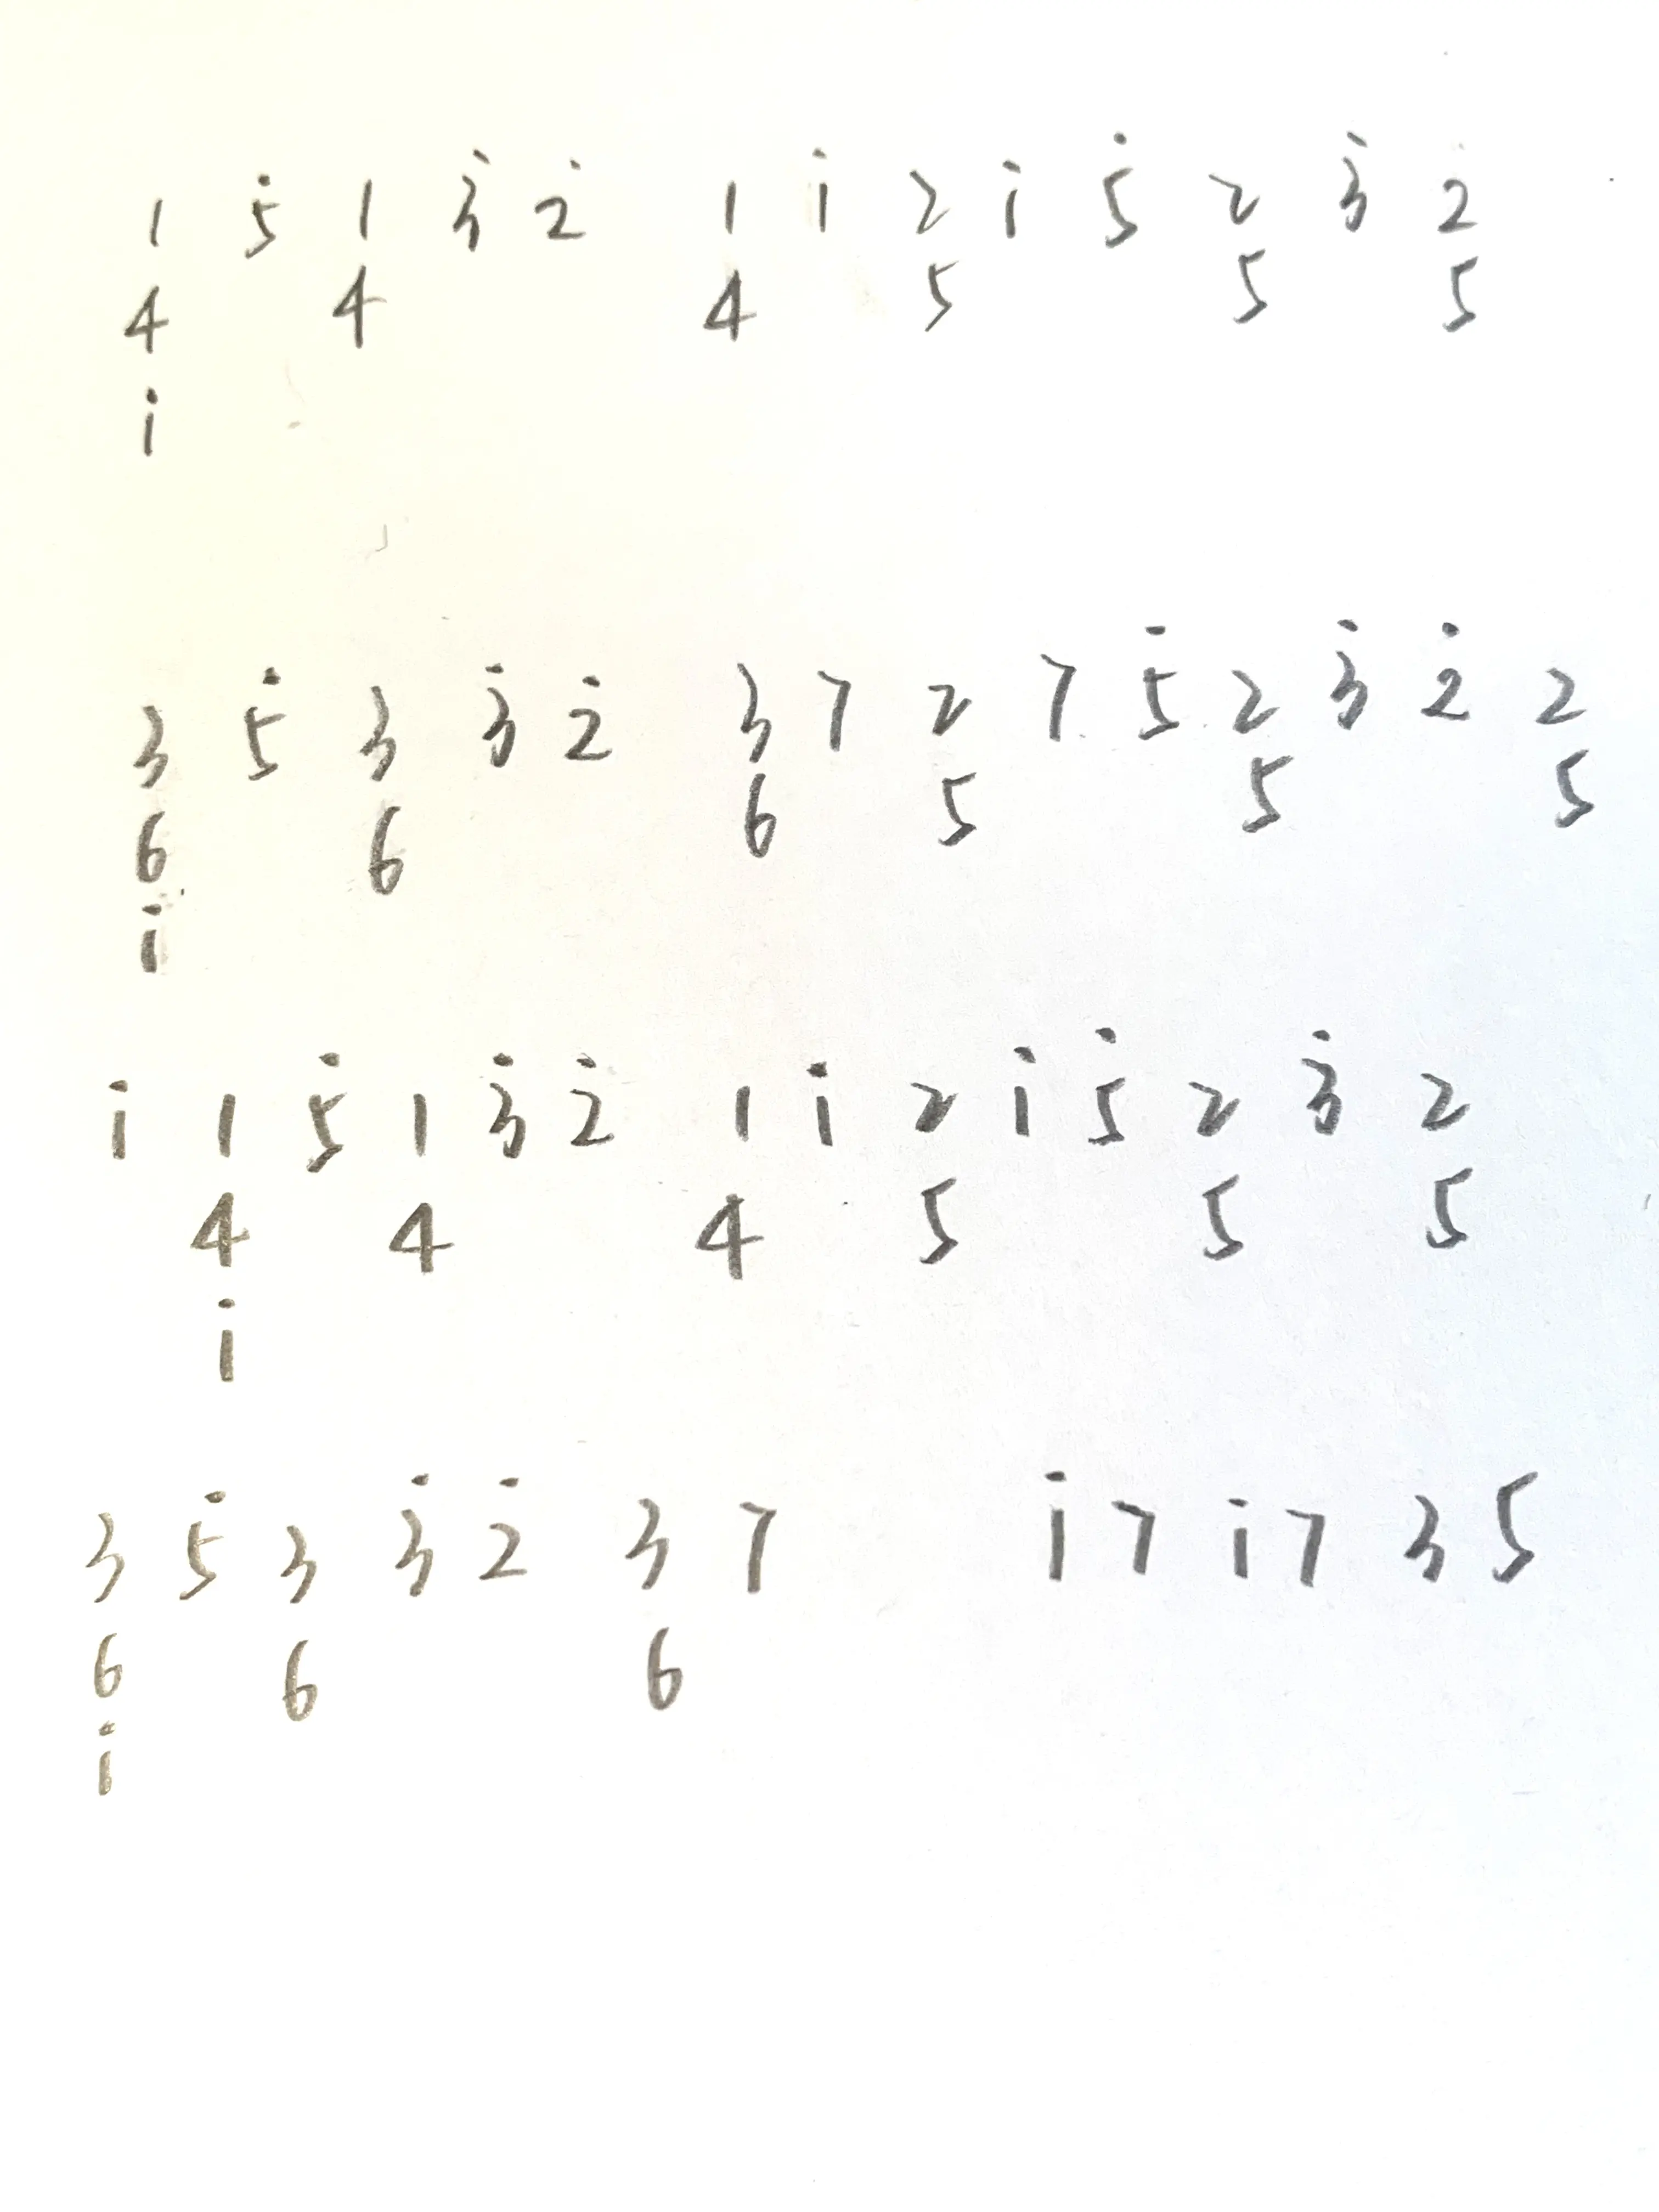 1 5̇ 1 3̇ 2̇ 1 1̇ 2 1̇ 5̇ 2 3̇ 2̇
4 4 4 5 5 5
1̇
3 5̇ 3 3̇ 2̇ 3 7 2 7 5̇ 2 3̇ 2̇ 2
6 6 6 5 5 5
1̇
1̇ 1 5̇ 1 3̇ 2̇ 1 1̇ 2 1̇ 5̇ 2 3̇ 2
4 4 4 5 5 5
1̇
3 5̇ 3 3̇ 2̇ 3 7 1̇ 7 1̇ 7 3 5
6 6 6
1̇